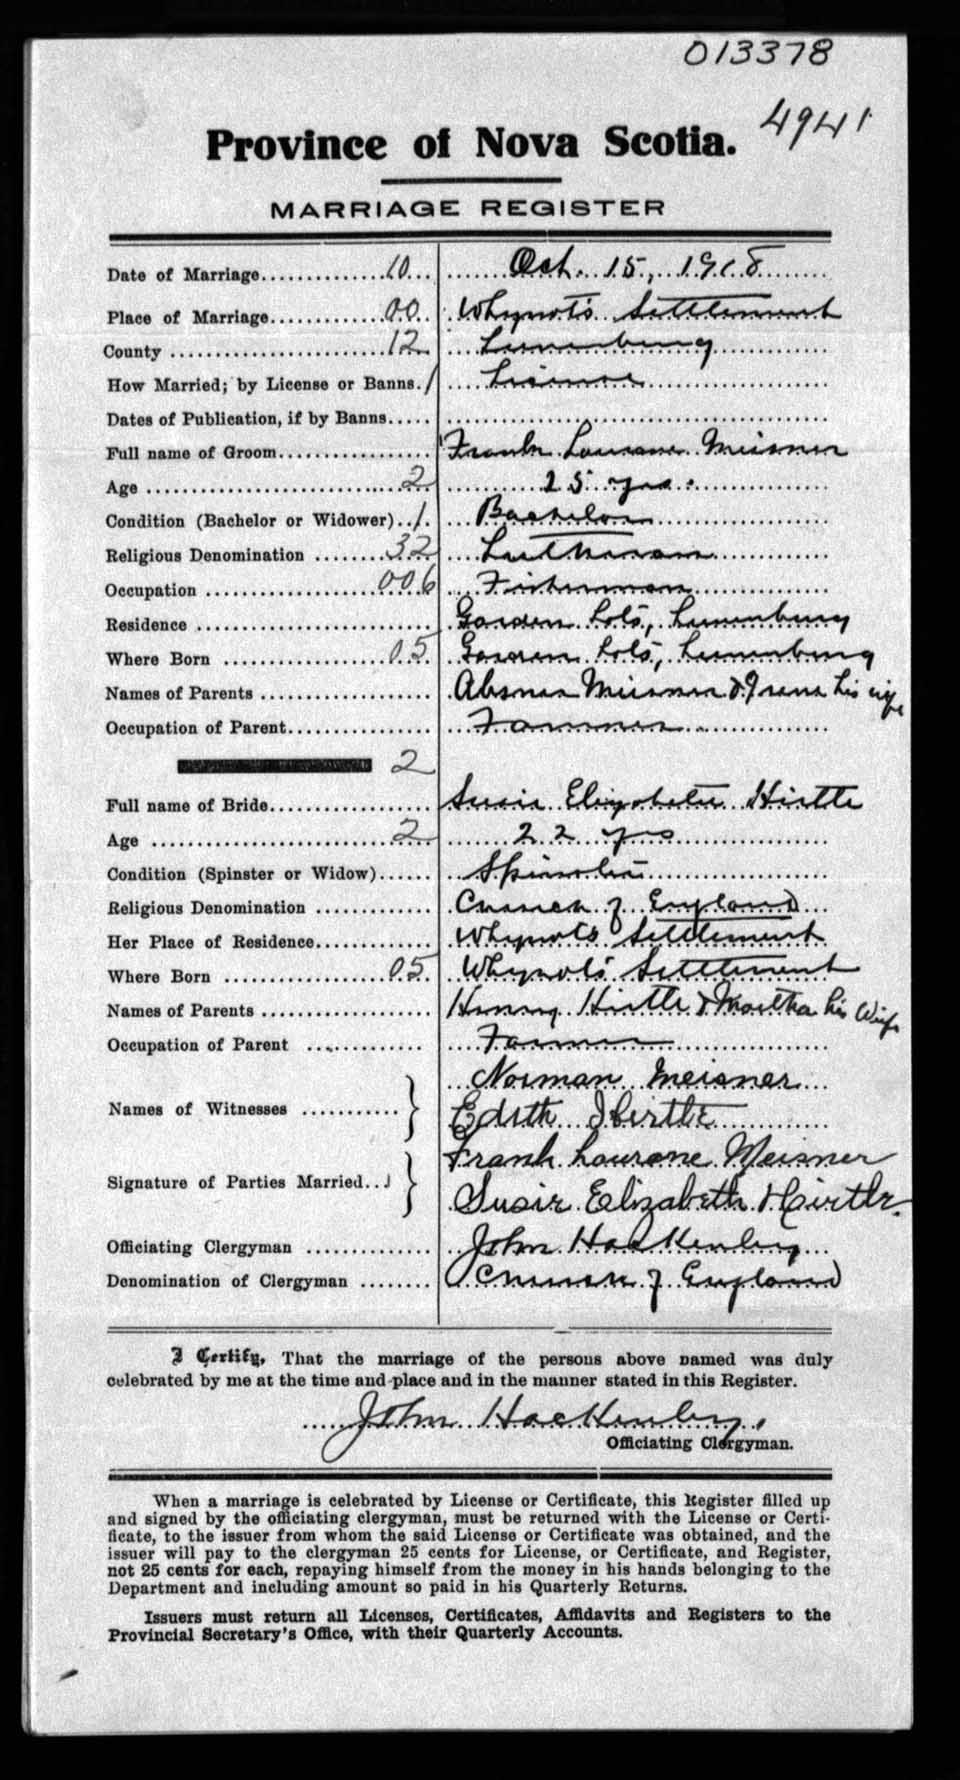 013378
4941
Province of Nova Scotia.
MARRIAGE REGISTER
Date of Marriage 10 Oct. 15, 1918
Place of Marriage 00 Whynots Settlement
County 12 Lunenburg
How Married; by License or Banns. 1 License
Dates of Publication, if by Banns
Full name of Groom Frank Laurane Meisner
Age 2 25 yrs.
Condition (Bachelor or Widower) 1 Bachelor
Religious Denomination 32 Lutheran
Occupation 006 Fisherman
Residence Garden Lots, Lunenburg
Where Born 05 Garden Lots, Lunenburg
Names of Parents Meisner & his wife
Occupation of Parent Farmer
2
Full name of Bride Susie Elizabeth Hirtle
Age 2 22 yrs
Condition (Spinster or Widow) Spinster
Religious Denomination Church of England
Her Place of Residence Whynots Settlement
Where Born 05 Whynots Settlement
Names of Parents Henry Hirtle & Martha his Wife
Occupation of Parent Farmer
Norman Meisner
Names of Witnesses }
Edith Hirtle
Frank Laurane Meisner
Signature of Parties Married }
Susie Elizabeth Hirtle.
Officiating Clergyman John Hackenley
Denomination of Clergyman Church of England
I Certify, That the marriage of the persons above named was duly
celebrated by me at the time and place and in the manner stated in this Register.
John Hackenley,
Officiating Clergyman.
When a marriage is celebrated by License or Certificate, this Register filled up
and signed by the officiating clergyman, must be returned with the License or Certi-
ficate, to the issuer from whom the said License or Certificate was obtained, and the
issuer will pay to the clergyman 25 cents for License, or Certificate, and Register,
not 25 cents for each, repaying himself from the money in his hands belonging to the
Department and including amount so paid in his Quarterly Returns.
Issuers must return all Licenses, Certificates, Affidavits and Registers to the
Provincial Secretary's Office, with their Quarterly Accounts.